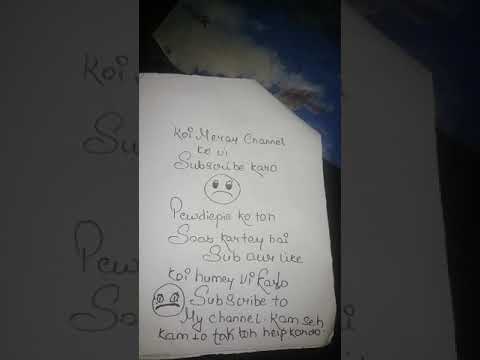 Koi Meray Channel
ke vi
Subscribe karo
Pewdiepie ke toh
Soab kartay hai
Sub aur like
koi humey vi Karlo
Subscribe to
My channel. Kam seh
kam 10 tak toh help kardo.